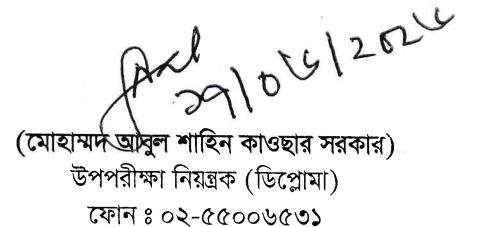 ২৭/০৫/২০২৫
(মোহাম্মদ আবুল শাহিন কাওছার সরকার)
উপপরীক্ষা নিয়ন্ত্রক (ডিপ্লোমা)
ফোন ঃ ০২-৫৫০০৬৫৩১